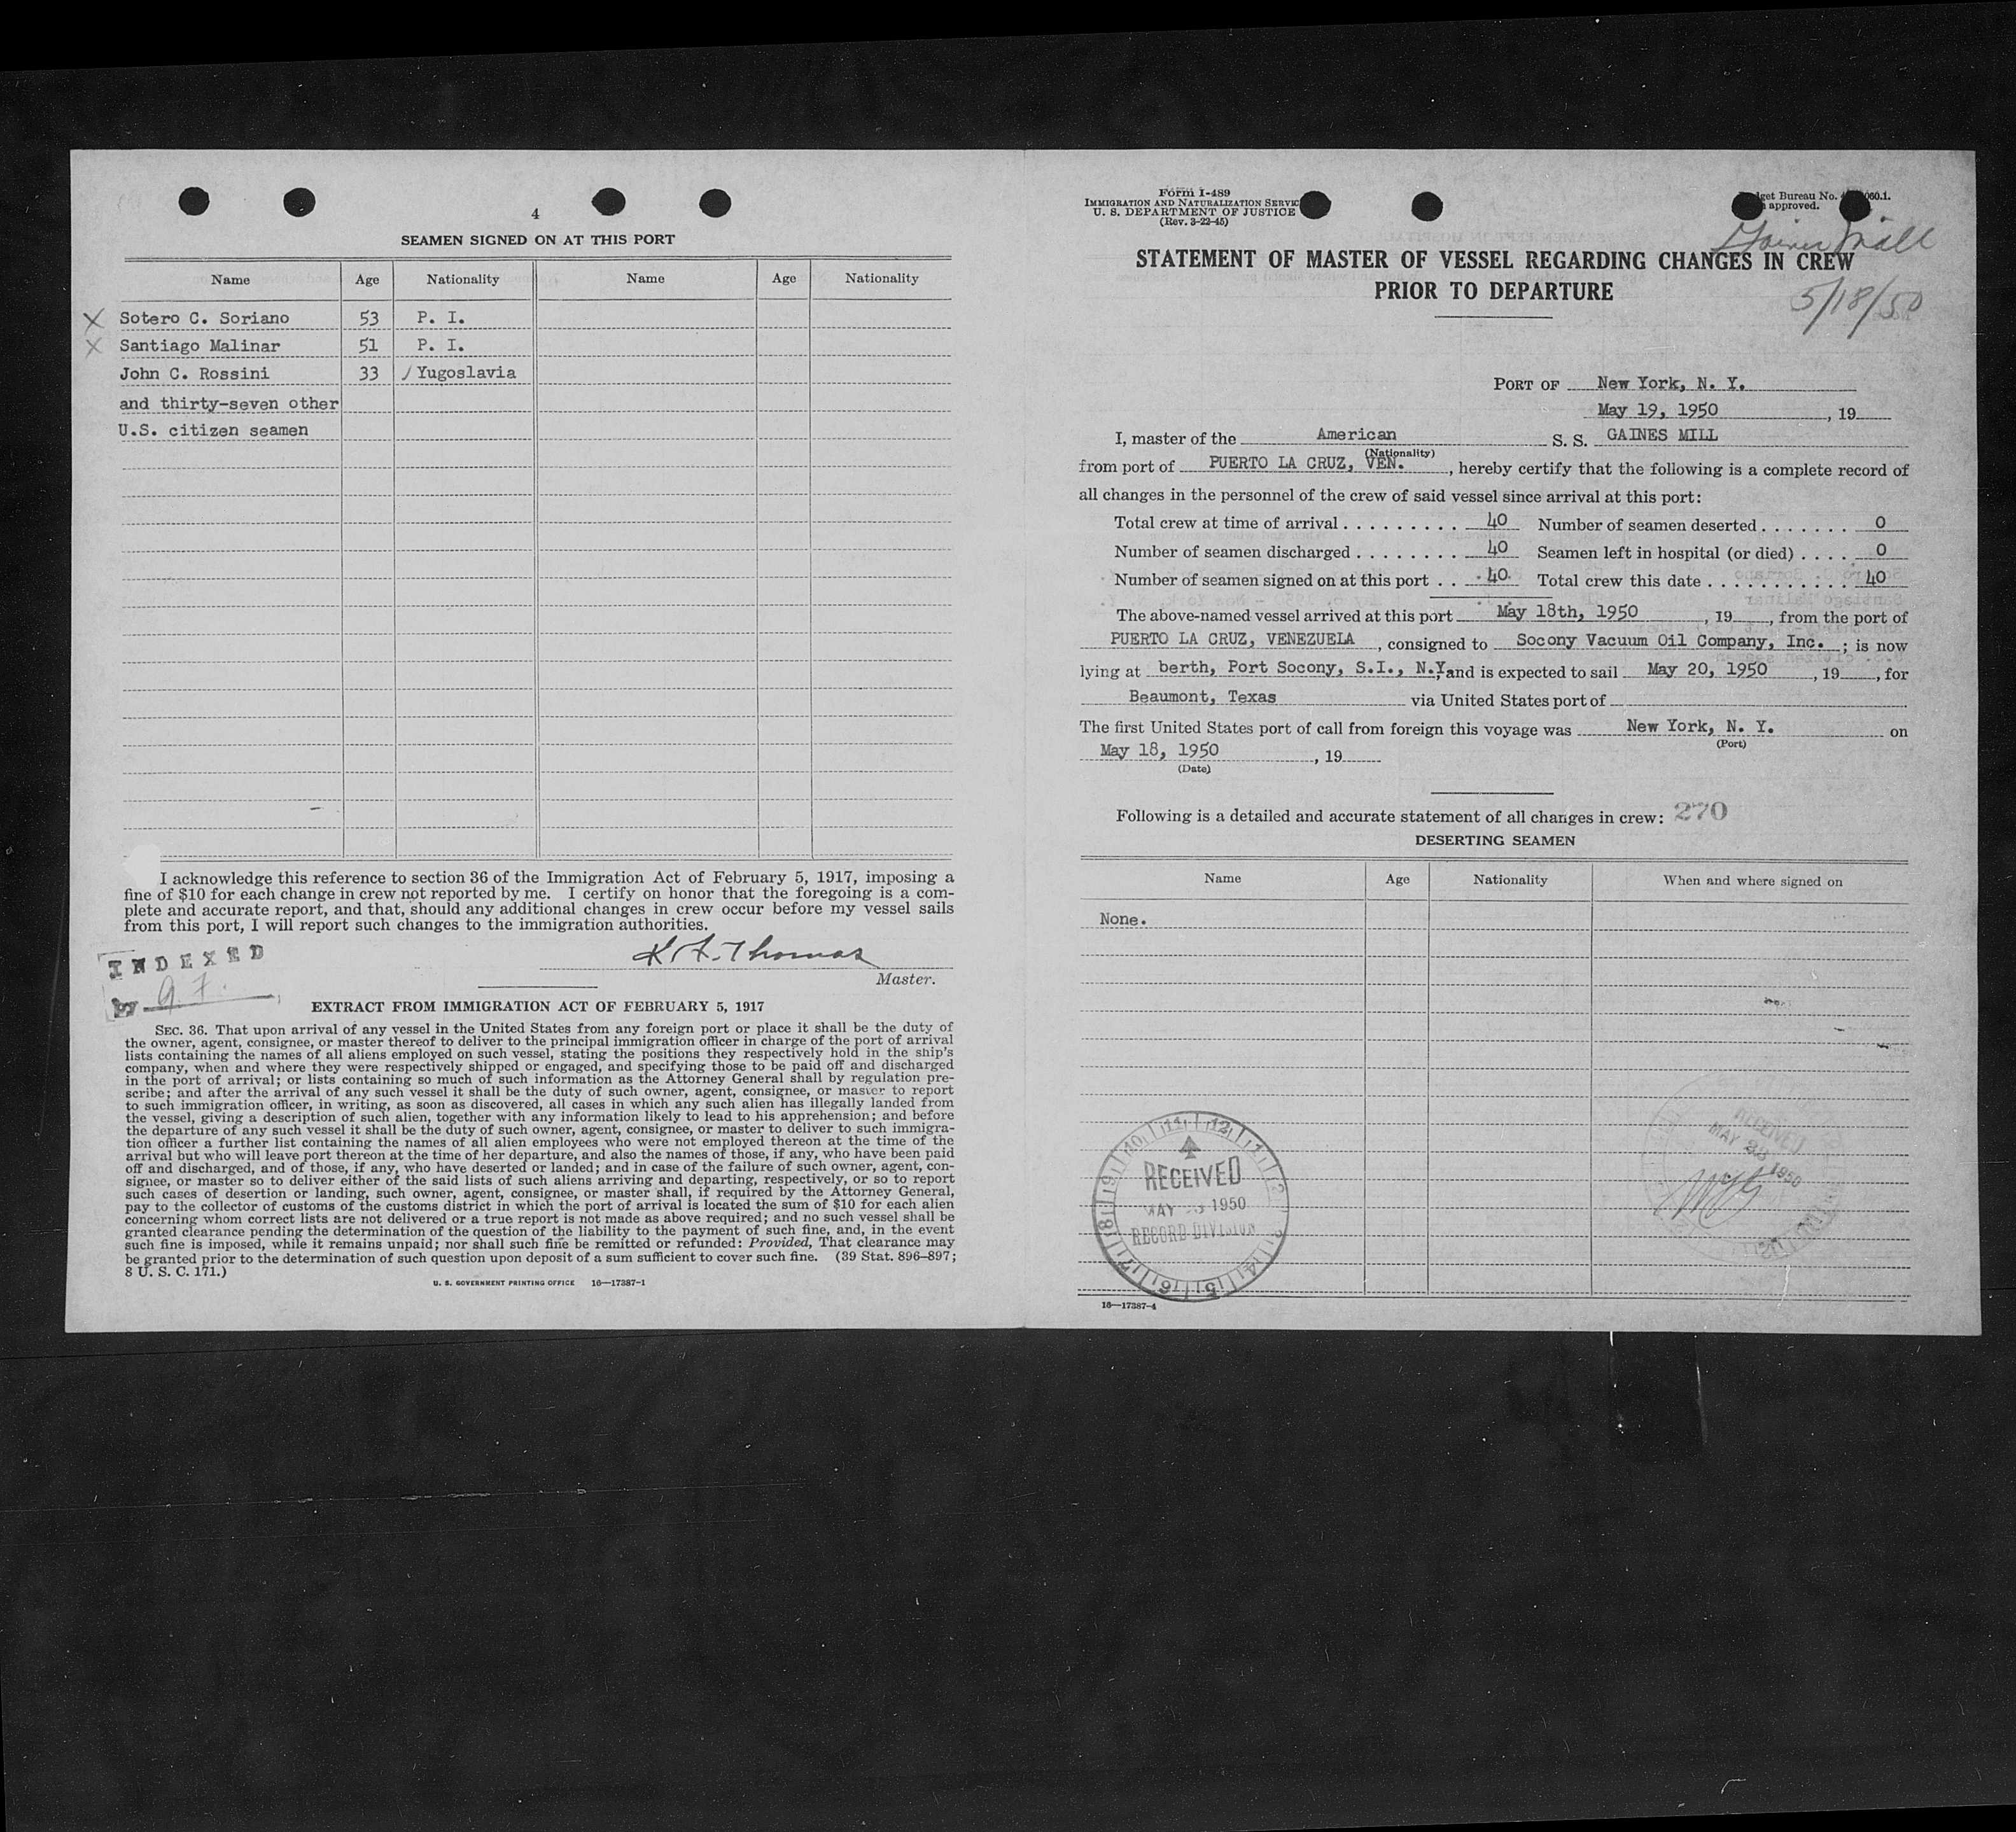 4
SEAMEN SIGNED ON AT THIS PORT
Name Age Nationality Name Age Nationality
X Sotero C. Soriano 53 P. I.
X Santiago Malinar 51 P. I.
John C. Rossini 33 / Yugoslavia
and thirty-seven other
U.S. citizen seamen
I acknowledge this reference to section 36 of the Immigration Act of February 5, 1917, imposing a
fine of $10 for each change in crew not reported by me. I certify on honor that the foregoing is a com-
plete and accurate report, and that, should any additional changes in crew occur before my vessel sails
from this port, I will report such changes to the immigration authorities.
INDEXED
by
Thomas
Master.
EXTRACT FROM IMMIGRATION ACT OF FEBRUARY 5, 1917
SEC. 36. That upon arrival of any vessel in the United States from any foreign port or place it shall be the duty of
the owner, agent, consignee, or master thereof to deliver to the principal immigration officer in charge of the port of arrival
lists containing the names of all aliens employed on such vessel, stating the positions they respectively hold in the ship's
company, when and where they were respectively shipped or engaged, and specifying those to be paid off and discharged
in the port of arrival; or lists containing so much of such information as the Attorney General shall by regulation pre-
scribe; and after the arrival of any such vessel it shall be the duty of such owner, agent, consignee, or master to report
to such immigration officer, in writing, as soon as discovered, all cases in which any such alien has illegally landed from
the vessel, giving a description of such alien, together with any information likely to lead to his apprehension; and before
the departure of any such vessel it shall be the duty of such owner, agent, consignee, or master to deliver to such immigra-
tion officer a further list containing the names of all alien employees who were not employed thereon at the time of the
arrival but who will leave port thereon at the time of her departure, and also the names of those, if any, who have been paid
off and discharged, and of those, if any, who have deserted or landed; and in case of the failure of such owner, agent, con-
signee, or master so to deliver either of the said lists of such aliens arriving and departing, respectively, or so to report
such cases of desertion or landing, such owner, agent, consignee, or master shall, if required by the Attorney General,
pay to the collector of customs of the customs district in which the port of arrival is located the sum of $10 for each alien
concerning whom correct lists are not delivered or a true report is not made as above required; and no such vessel shall be
granted clearance pending the determination of the question of the liability to the payment of such fine, and, in the event
such fine is imposed, while it remains unpaid; nor shall such fine be remitted or refunded: Provided, That clearance may
be granted prior to the determination of such question upon deposit of a sum sufficient to cover such fine. (39 Stat. 896–897;
8 U. S. C. 171.)
U. S. GOVERNMENT PRINTING OFFICE 16—17387-1
Form I-489
IMMIGRATION AND NATURALIZATION SERVIC
U. S. DEPARTMENT OF JUSTICE
(Rev. 3-22-45)
get Bureau No. 060.1.
approved.
Gaines Mill
STATEMENT OF MASTER OF VESSEL REGARDING CHANGES IN CREW
PRIOR TO DEPARTURE
5/18/50
PORT OF New York, N. Y.
May 19, 1950, 19
I, master of the American S. S. GAINES MILL
(Nationality)
from port of PUERTO LA CRUZ, VEN., hereby certify that the following is a complete record of
all changes in the personnel of the crew of said vessel since arrival at this port:
Total crew at time of arrival . . . . . . . . . 40 Number of seamen deserted . . . . . . . 0
Number of seamen discharged . . . . . . . . 40 Seamen left in hospital (or died) . . . . 0
Number of seamen signed on at this port . . 40 Total crew this date . . . . . . . . . . . . 40
The above-named vessel arrived at this port May 18th, 1950, 19, from the port of
PUERTO LA CRUZ, VENEZUELA, consigned to Socony Vacuum Oil Company, Inc. ; is now
lying at berth, Port Socony, S.I., N.Y. and is expected to sail May 20, 1950, 19, for
Beaumont, Texas via United States port of
The first United States port of call from foreign this voyage was New York, N. Y. on
(Port)
May 18, 1950, 19
(Date)
Following is a detailed and accurate statement of all changes in crew: 270
DESERTING SEAMEN
Name Age Nationality When and where signed on
None.
RECEIVED
MAY 1950
RECORD DIVISION
RECEIVED
MAY 1950
16—17387-4